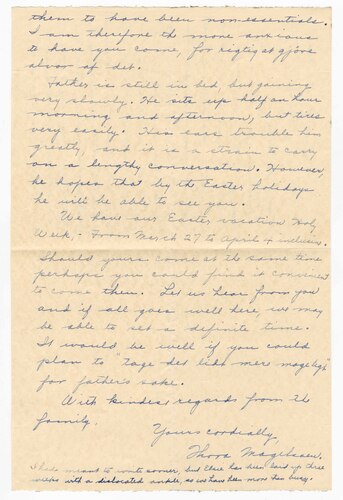 them to have been non-essentials.
I am therefore the more anxious
to have you come, for rigtig at gjøre
alvor af det.
Father is still in bed, but gaining
very slowly. He sits up half an hour
morning and afternoon, but tires
very easily. His ears trouble him
greatly, and it is a strain to carry
on a lengthy conversation. However
he hopes that by the Easter holidays
he will be able to see you.
We have our Easter vacation Holy
Week, - From March 27 to April 4 inclusive.
Should yours come at the same time
perhaps you could find it convenient
to come then. Let us hear from you
and if all goes well here, we may
be able to set a definite time.
It would be well if you could
plan to "tage det lidt mere mageligt"
for father's sake.
With kindest regards from the
family.
Yours cordially,
Thora Magelssen.
I had meant to write sooner, but have been laid up three
weeks with a dislocated ankle, so we have been more than busy.